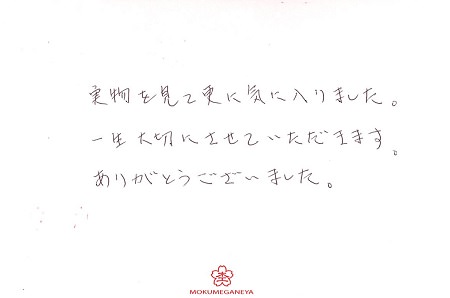 実物を見て更に気に入りました。
一生大切にさせていただきます。
ありがとうございました。
MOKUMEGANEYA